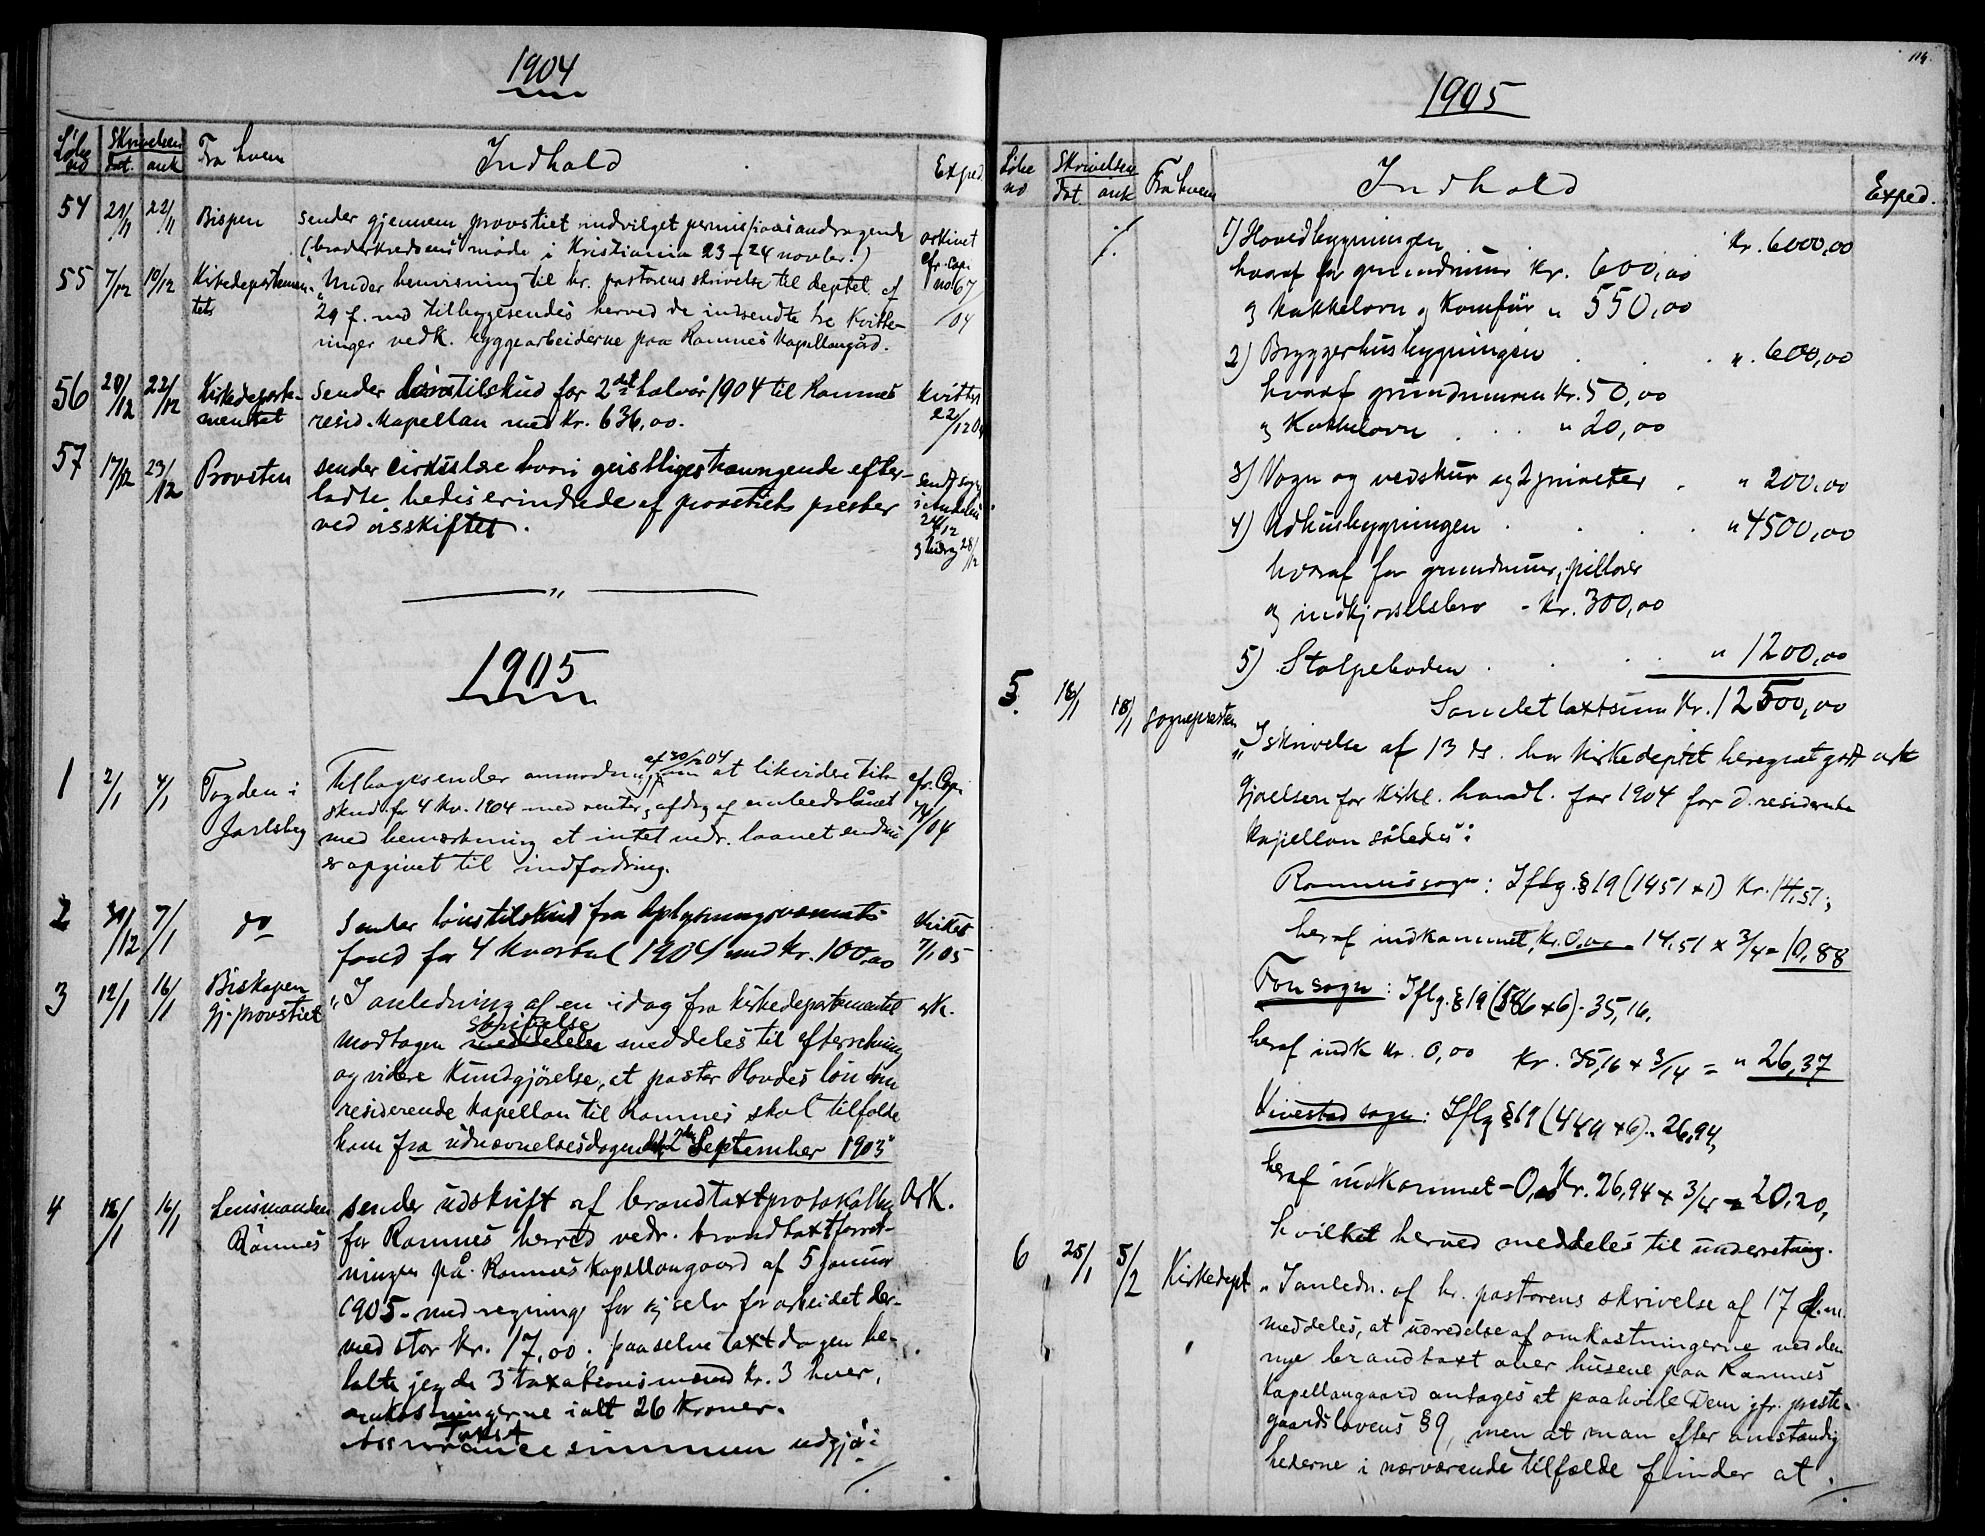 1904
Løbe no | Skrivelsen Dat. ank | Fra hvem | Indhold | Exped.
54 21/11 22/11 Bispen sender gjennem provstiet indvilget permissionsandragende arkivet
(broderkredsens møde i Kristiania 23-24 novbr.)
55 7/12 10/12 Kirkedepartementets "Under henvisning til hr. pastorens skrivelse til deptet. af cfr. Copi no 67/04
29 f. md tilbagesendes herved de indsendte tre Kvitte-
ringer vedk. byggearbeiderne paa Ramnes Kapellangård.
56 20/12 22/12 Kirkedeparte- sender lønstilskud for 2det halvår 1904 til Ramnes Kvitt
mentet resid. kapellan med kr. 636,00. 22/12 04
57 17/12 23/12 Provsten sender cirkulære hvori geistliges trængende efter-
ladte bedes erindrede af provstiets prester
ved årsskiftet.
24/12
28/12
"
1905
af 30/12 04
1 2/1 4/1 Fogden i Tilbagesender anmodning om at likvidere til- cfr. Cop.
Jarlsberg skud for 4 kv. 1904 med renter og afdrag af embedslånet 74/04
med bemærkning at intet vedr. laanet endnu
er opgivet til indfordring.
2 31/12 7/1 do Sender lønstilskud fra Oplysningsvæsenets
fond for 4 kvartal 1904 med kr. 100,00 7/1 05
3 12/1 16/1 Biskopen "I anledning af en idag fra kirkedepartementet ark.
gj. provstiet modtagen meddelelse skrivelse meddeles til efterretning
og videre kundgjørelse, at pastor Hovdes løn som
residerende kapellan til Ramnes skal tilfalde
ham fra udnævnelsesdagen den 2den September 1903"
4 16/1 16/1 Lensmanden sender udskrift af brandtaxtprotokollen Ark.
Ramnes for Ramnes herred vedr. brandtaxtforret-
ningen på Ramnes Kapellangaard af 5 januar
1905. med regning for sig selv for arbeidet der-
med stor kr. 17,00. paa selve taxtdagen be-
talte jeg de 3 taxationsmænd kr. 3 hver,
omkostningerne ialt 26 Kroner.
Takst
Assurancesummen udgjør:
./.
114.
1905
Løbe no | Skrivelsen Dat. ank | Fra hvem | Indhold | Exped.
./. 1) Hovedbygningen kr. 6000,00
hvoraf for grundmur kr. 600,00
og kakkelovn og Komfür " 550,00
2) Bryggerhusbygningen . . . " 600,00
hvoraf grundmuren kr. 50,00
og Kakkelovn . . . " 20,00
3) Vogn og vedskur og 2 priveter . " 200,00
4) Udhusbygningen . . . " 4500,00
hvoraf for grundmur, pillarer
og indkjørselsbro - kr. 300,00
5) Stolpeboden . . . " 1200,00
Samlet taxtsum kr. 12500,00
5. 16/1 18/1 sognepresten "I skrivelse af 13 ds. har kirkedeptet beregnet godt-
gjørelsen for kirkl. handl. for 1904 for d. residerende
kapellan således:
Ramnes sogn: Iflg. § 19 (1451 x 1) kr. 14,51,
heraf indkommet, kr. 0,00 - 14,51 x 3/4 = 10,88
Fon sogn: Iflg. § 19 (586 x 6) - 35,16.
heraf indk kr. 0,00 kr. 35,16 x 3/4 = " 26,37
Vivestad sogn: Iflg § 19 (449 x 6) - 26,94,
heraf indkommet - 0,00 kr. 26,94 x 3/4 = 20,20,
hvilket herved meddeles til underretning.
6 25/1 5/2 Kirkedept. "I anledn. af hr. pastorens skrivelse af 17 d.m.
meddeles, at udredelse af omkostningerne ved den
nye brandtaxt over husene paa Ramnes
Kapellangaard antages at paahvile Dem jfr. preste-
gaardslovens § 9, men at man efter omstændig
hederne i nærværende tilfælde finder at
./.